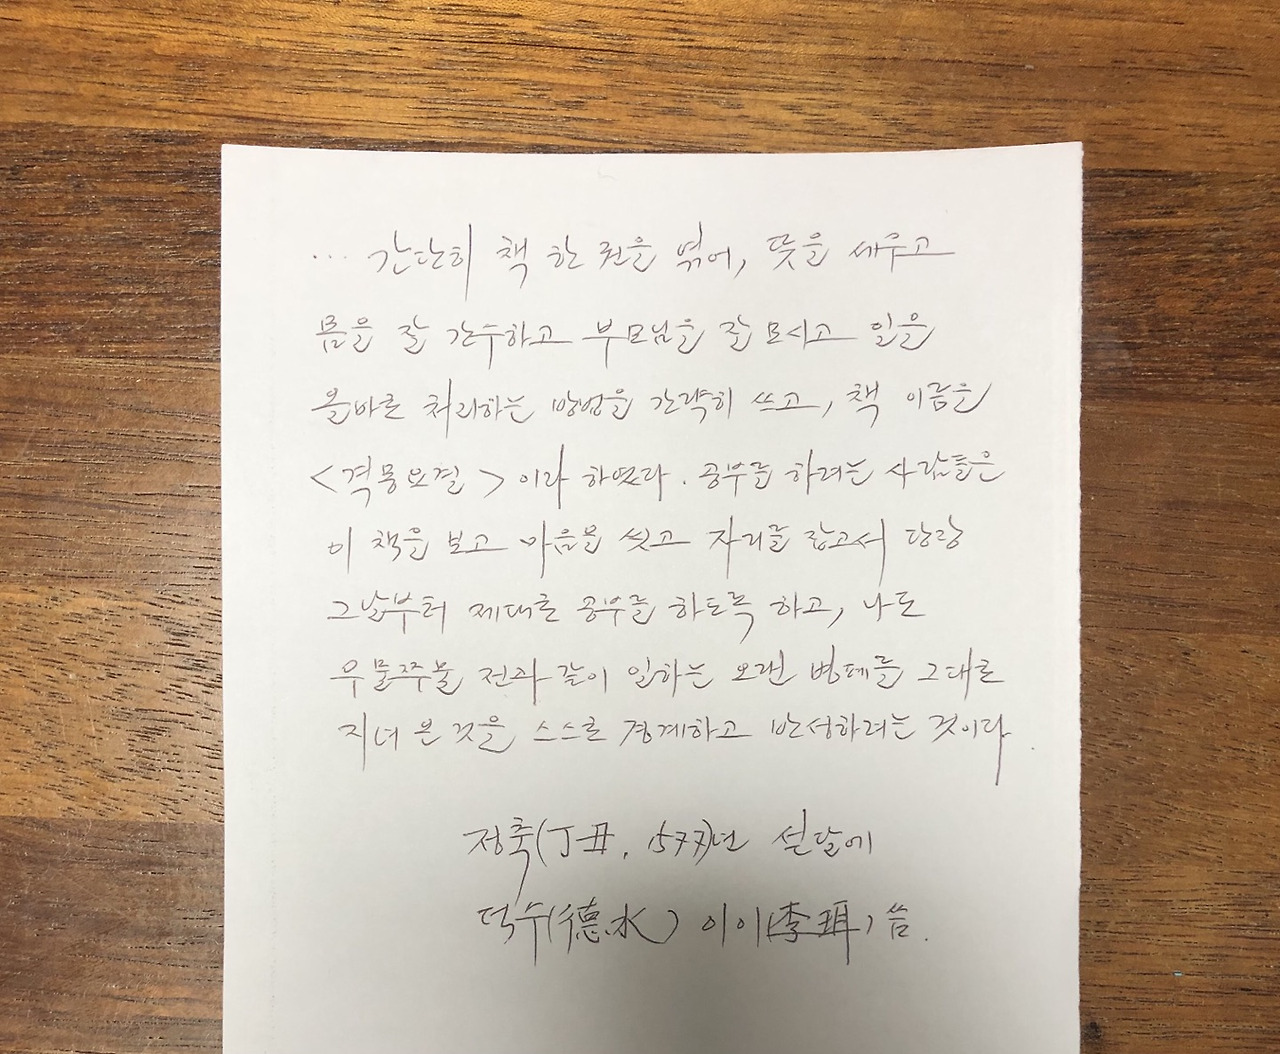 … 간단히 책 한 권을 엮어, 뜻을 세우고
몸을 잘 간수하고 부모님을 잘 모시고 일을
올바로 처리하는 방법을 간략히 쓰고, 책 이름을
<격몽요결>이라 하였다. 공부를 하려는 사람들은
이 책을 보고 마음을 씻고 자리를 잡고서 당장
그날부터 제대로 공부를 하도록 하고, 나도
우물쭈물 전과 같이 일하는 오랜 병폐를 그대로
지녀 온 것을 스스로 경계하고 반성하려는 것이다.
정축(丁丑, 1577)년 섣달에
덕수(德水) 이이(李珥) 씀.